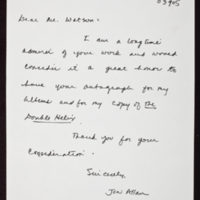 03905
Dear Mr. Watson:
I am a longtime
admirer of your work and would
consider it a great honor to
have your autograph for my
albums and for my copy of The
Double Helix.
Thank you for your
consideration.
Sincerely,
Jim